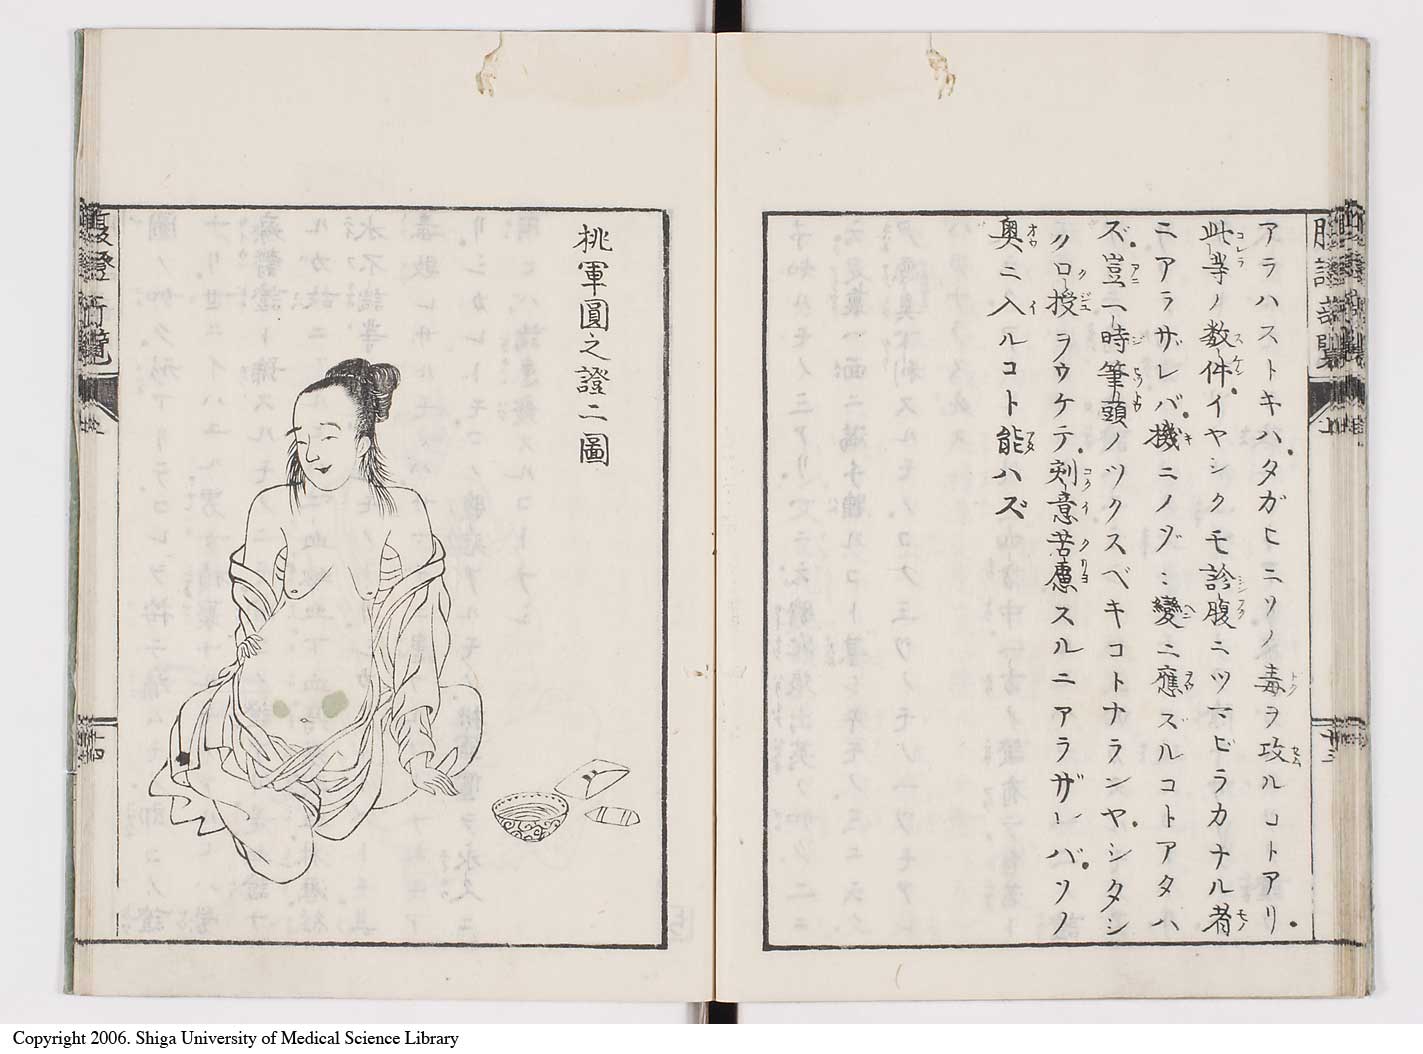 アラハストキハ、タガヒニソノ毒ヲ攻ルコトアリ。
此等ノ数件、イヤシクモ診腹ニツマビラカナル者
ニアラザレバ、機ニノゾミ變ニ應ズルコトアタハ
ズ、豈一時筆頭ノツクスベキコトナランヤ、シタシ
ク口授ヲウケテ、刻意苦慮スルニアラザレバ、ソノ
奥ニ入ルコト能ハズ
桃軍圓之證二圖
Copyright 2006. Shiga University of Medical Science Library